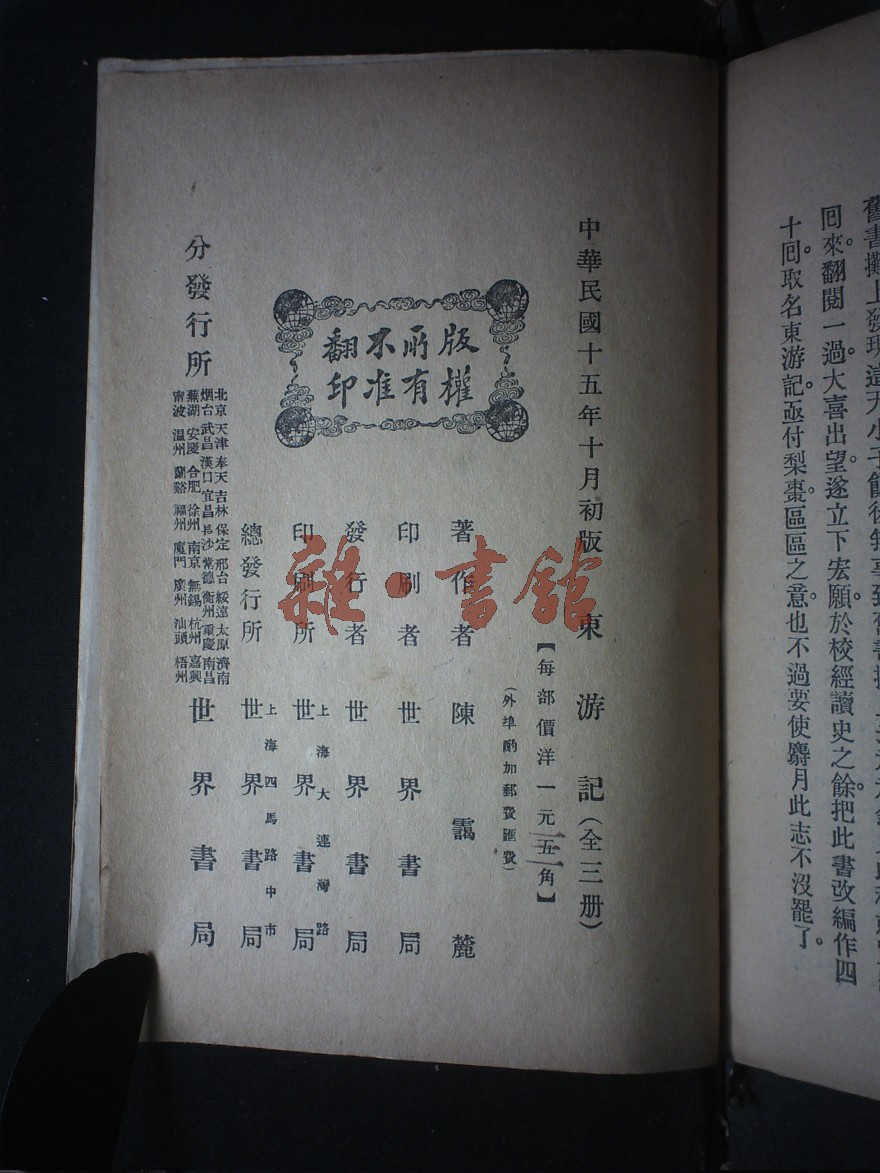 舊書攤上發現這
回來。翻閱一過。大喜出望。遂立下宏願。於校經讀史之餘。把此書改編作四
十回。取名東游記。亟付梨棗。區區之意。也不過要使麝月此志不沒罷了。
中華民國十五年十月初版
東游記(全三册)
【每部價洋一元五角】
(外埠酌加郵費匯費)
版權所有不准翻印
著作者 陳靄麓
印刷者 世界書局
發行者 世界書局
印刷所 上海大連灣路 世界書局
總發行所 上海四馬路中市 世界書局
分發行所
北京 天津 奉天 吉林 保定 邢台 綏遠 太原 濟南
烟台 武昌 漢口 宜昌 長沙 常德 衡州 重慶 南昌
蕪湖 安慶 合肥 徐州 南京 無錫 杭州 嘉興
甯波 溫州 蘭谿 福州 廈門 廣州 汕頭 梧州
世界書局
雜·書館